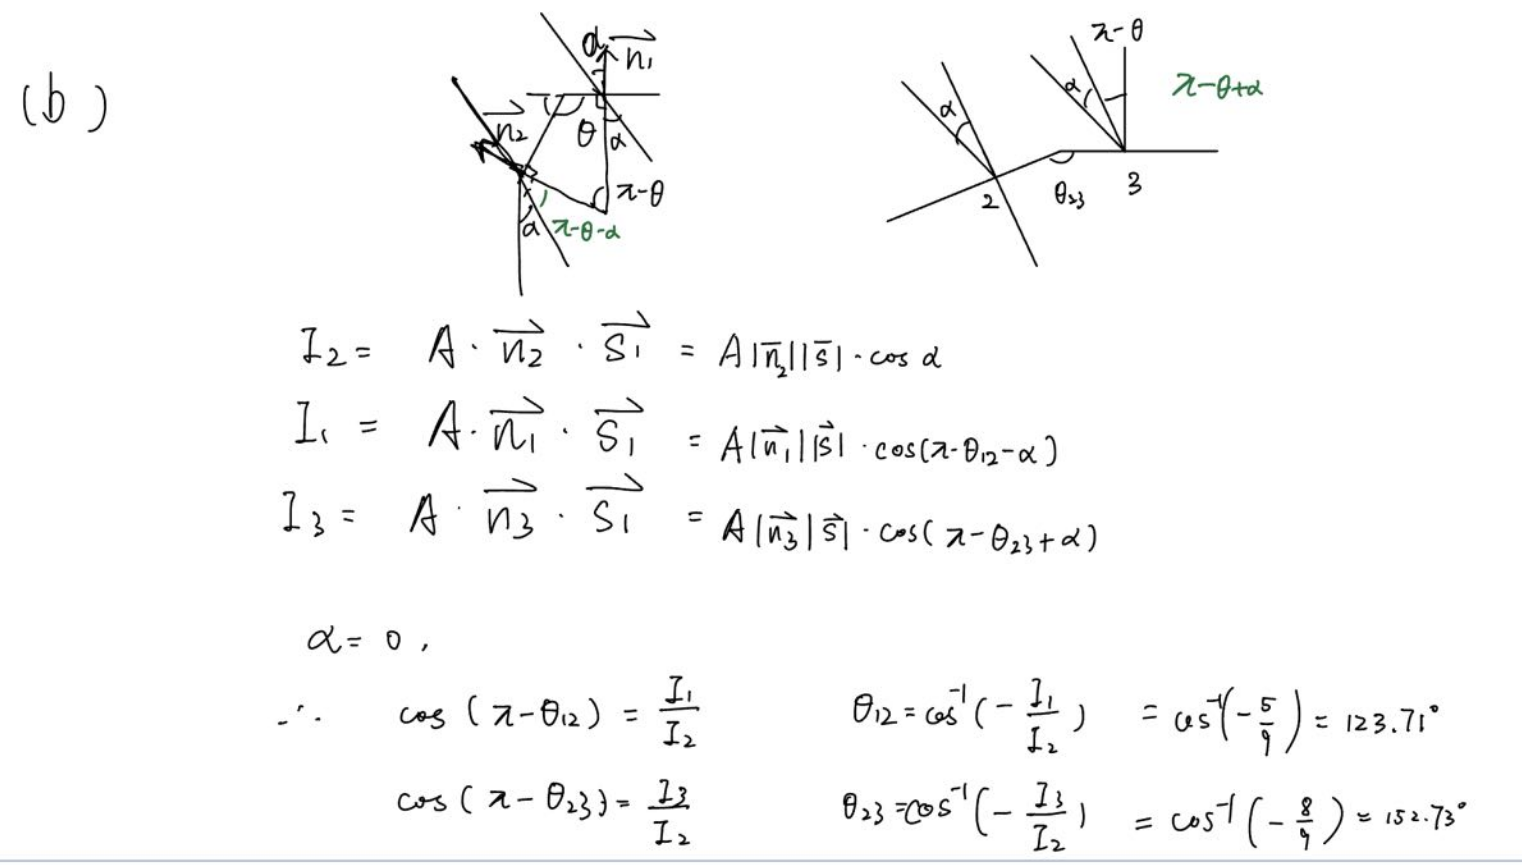 (b)
α n₁
n₂ θ α
π-θ
α π-θ-α
π-θ
α α π-θ+α
2 θ₂₃ 3
I₂ = A · n₂ · S₁ = A|n₂||s| · cos α
I₁ = A · n₁ · S₁ = A|n₁||s| · cos(π-θ₁₂-α)
I₃ = A · n₃ · S₁ = A|n₃|s| · cos(π-θ₂₃+α)
α = 0,
∴ cos(π-θ₁₂) = I₁/I₂ θ₁₂ = cos⁻¹(- I₁/I₂) = cos⁻¹(- 5/9) = 123.71°
cos(π-θ₂₃) = I₃/I₂ θ₂₃ = cos⁻¹(- I₃/I₂) = cos⁻¹(- 8/9) = 152.73°